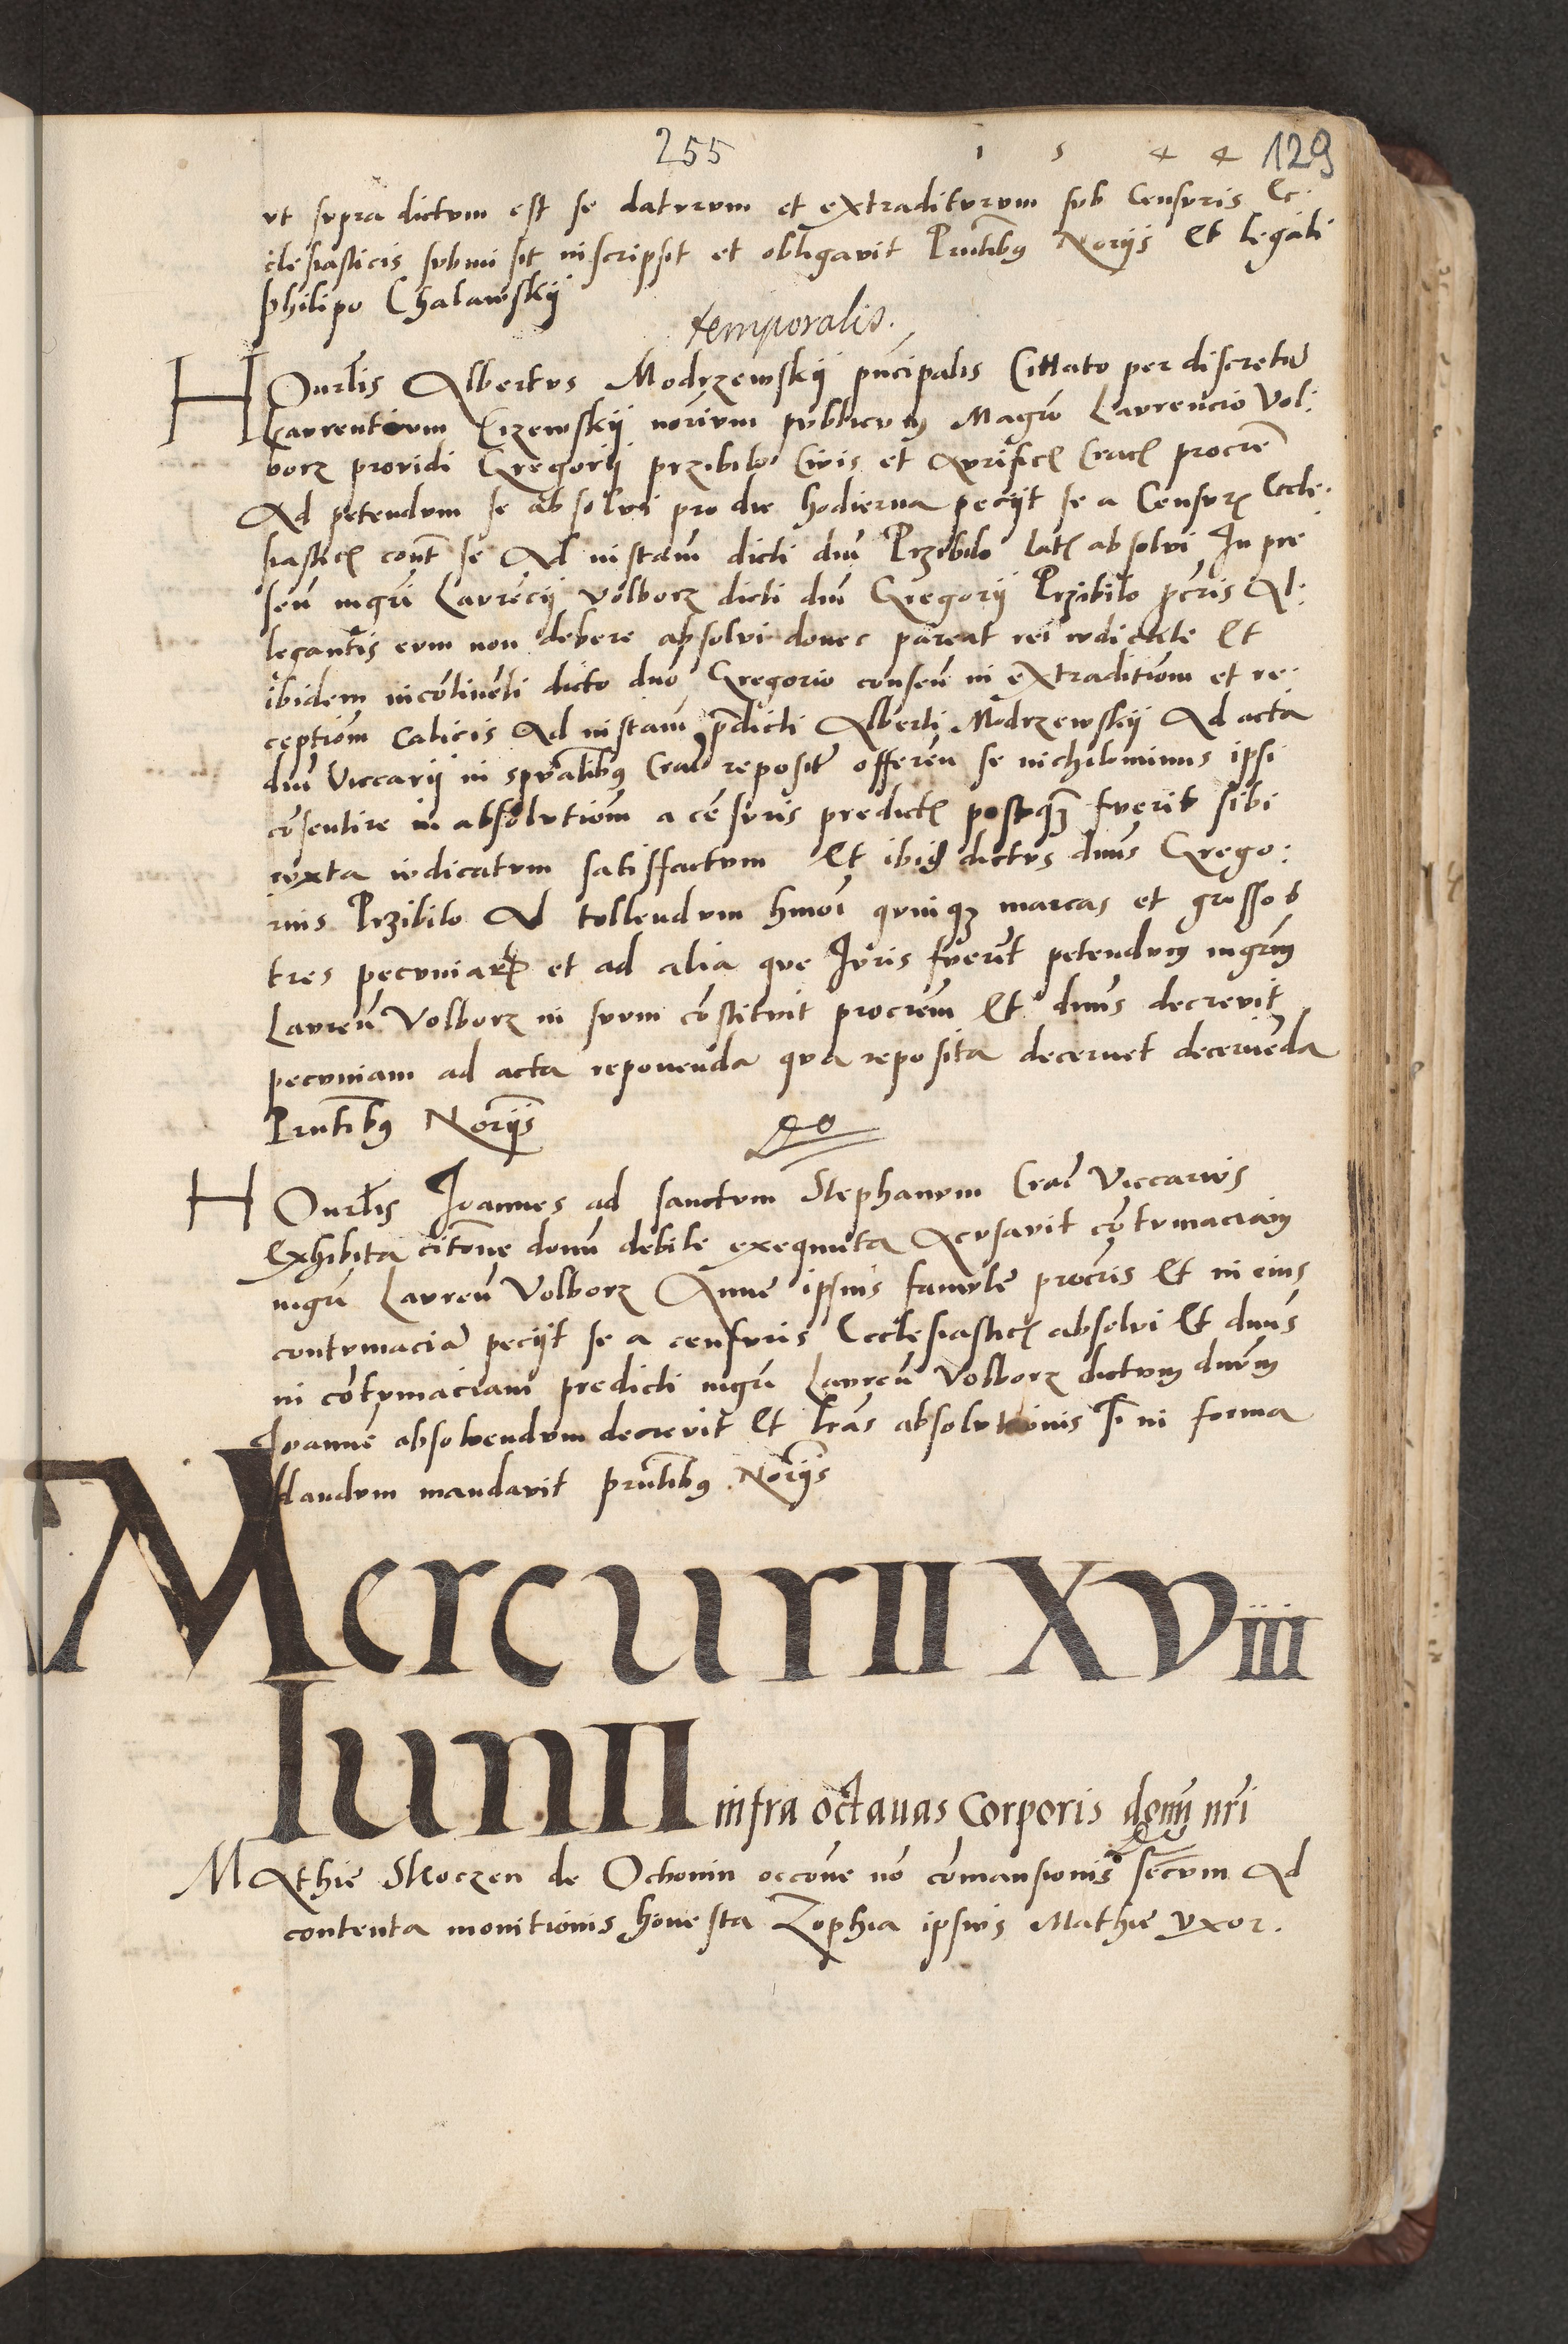 255 1 5 4 4 129
vt supra dictum est se daturum et extraditurum sub Censuris Ec:
clesiasticis submisit inscripsit et obligavit Pñtibus Norijs Et legali
Philipo Chalawskij
temporalis.
HOnrlis Albertus Modrzewskij pñcipalis Cittato per discretũ
Laurentium Cizewskij norium publicum Magrũ Laurencio Vol:
borz providi Gregorij przibilo Civis et Aurificis Crac procrẽ
Ad petendum se absolvi pro die hodierna peciit se a Censur Eccle:
siastic cont se Ad instam dicti dni Przibilo lat absolvi In pre
sen mgri Laurẽcij Volborz dicti dni Gregorij Przibilo pcris Al:
legantis eum non debere absolvi donec pareat rei iudicate Et
ibidem incõtinẽti dicto dno Gregorio consen in extraditiom et re:
ceptiom Calicis Ad instam pdicti Alberti Modrzewskij Ad acta
dni Viccarij in spualibus Crac reposit offeren se nichilominus ipsi
cõsentire in absolutiom a cẽsuris predict postquam fuerit sibi
iuxta iudicatum satisffactum Et ibid dictus dnus Grego:
rius Przibilo Ad tollendum hmoi quinque marcas et grossos
tres pecuniar et ad alia que Iuris fuerit petendum mgrum
Lauren Volborz in suum cõstituit procrem Et dnus decrevit
pecuniam ad acta reponenda qua reposita decernet decernẽda
Prntibus Norijs
HOnrlis Joannes ad sanctum Stephanum Crac Viccarius
Exhibita citõne donu debite exequuta Acusavit cõtumaciam
mgri Lauren Volborz Anne ipsius famule procris Et in eius
contumaciã peciit se a censuris Ecclesiastic absolvi Et dnus
in cõtumaciam predicti mgri Lauren Volborz dictum dnum
Joannẽ absolvendum decrevit Et lras absolutionis si in forma
dandum mandavit prntibus Norijs
MercurII XVIII
IunII infra octauas Corporis domi nri
MAthie Skoczen de Ochonin occõne nõ cõmansionis secum Ad
contenta monitionis honesta Zophia ipsius Mathie uxor.